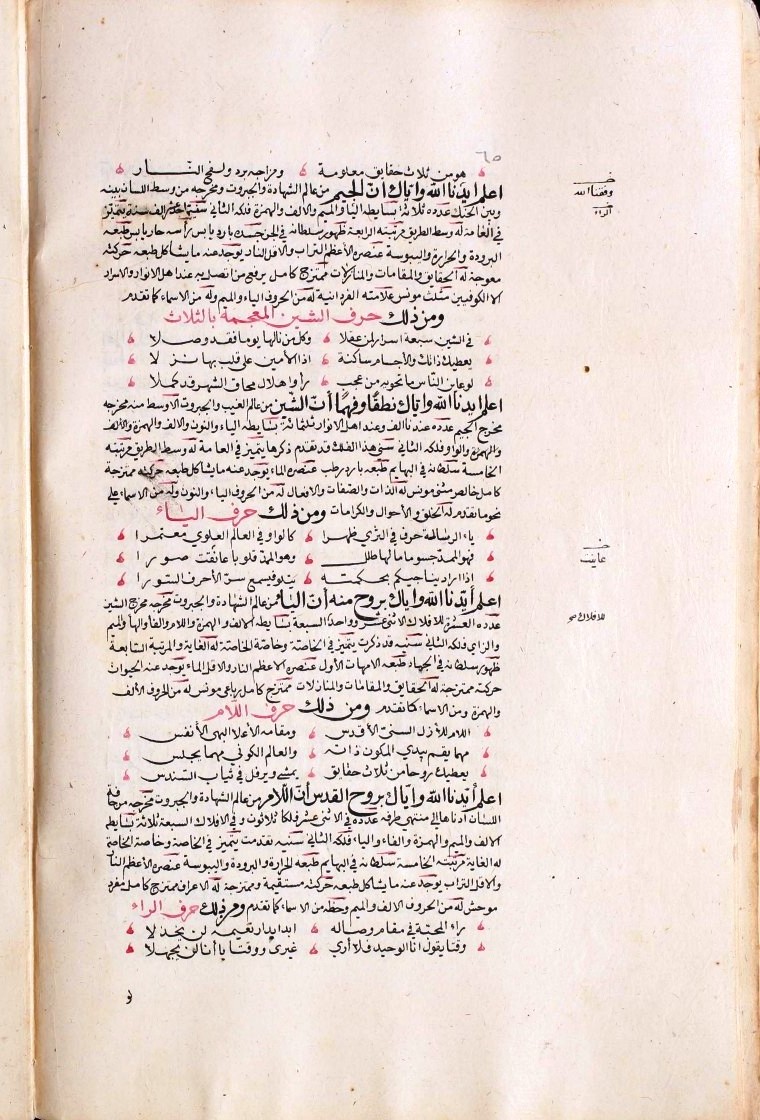 ٦٥
هو من ثلاث حقايق معلومة ومزاجه برد ولفح النار
اعلم ايدنا الله واياك ان الجيم من عالم الشهادة والجبروت ومخرجه من وسط اللسان بينه
وبين الحنك عدده ثلاثة بسايطه الياء والميم والالف والهمزة فلكه الثاني سنيه احد عشر الف سنة يتميز
في العامة له وسط الطريق مرتبته الرابعة ظهور سلطانه في الجن جسده بارد يابس رأسه حار يابس طبعه
البرودة والحرارة واليبوسة عنصره الأعظم التراب والاقل النار يوجد عنه ما يشاكل طبعه حركته
معوجة له الحقايق والمقامات والمنازلات ممتزج كامل يرفع من اتصل به عند اهل الانوار والاسرار
الا الكوفيين مثلث مونس علامته الفردانية له من الحروف الياء والميم وله من الاسماء كما تقدم
ومن ذلك حرف الشين المعجمة بالثلاث
في الشين سبعة اسرار لمن عقلا وكل من نالها يوما فقد وصلا
يعطيك ذاتك والاجسام ساكنة اذا الأمين على قلب بها نزلا
لو عاين الناس ما تحويه من عجب رأوا هلال محاق الشهر قد كملا
اعلم ايدنا الله واياك نطقا وفهما أن الشين من عالم الغيب والجبروت الاوسط منه مخرجه
مخرج الجيم عدده عندنا الف وعند اهل الانوار ثلثمائة بسايطه الياء والنون والالف والهمزة والالف
والهمزة والواو فلكه الثاني سني هذا الفلك قد تقدم ذكرها يتميز في العامة له وسط الطريق مرتبته
الخامسة سلطانه في البهايم طبعه بارد رطب عنصره الماء يوجد عنه ما يشاكل طبعه حركته ممتزجة
كامل خالص مثنى مونس له الذات والصفات والافعال له من الحروف الياء والنون وله من الاسماء على
نحو ما تقدم له الخلق والأحوال والكرامات ومن ذلك حرف الياء
ياء الرسالة حرف في الثرى ظهرا كالواو في العالم العلوي معتمرا
فهو الممد جسوما ما لها ظلل وهو الممد قلوبا عانقت صورا
إذا اراد يناجيكم بحكمته يتلو فيسمع سر الأحرف السورا
اعلم أيدنا الله واياك بروح منه أن الياء من عالم الشهادة والجبروت مخرجه مخرج الشين
عدده العشرة للافلاك الاثنى عشر وواحد السبعة بسايطه الالف والهمزة واللام والفا والهاء والميم
والزاي فلكه الثاني سنيه قد ذكرت يتميز في الخاصة وخاصة الخاصة له الغاية والمرتبة السابعة
ظهور سلطانه في الجماد طبعه الامهات الأول عنصره الاعظم النار والاقل الماء يوجد عنه الحيوان
حركته ممتزجة له الحقايق والمقامات والمنازلات ممتزج كامل رباعي مونس له من الحروف الألف
والهمزة ومن الاسماء كما تقدم ومن ذلك حرف اللام
اللام للأزل السني الأقدس ومقامه الأعلا البهي الأنفس
مهما يقم يبدي المكون ذاته والعالم الكوني مهما يجلس
يعطيك روحا من ثلاث حقايق يمشي ويرفل في ثياب السندس
اعلم أيدنا الله واياك بروح القدس أن اللام من عالم الشهادة والجبروت مخرجه من حافة
اللسان أدناها إلى منتهى طرفه عدده في الاثنى عشر فلكا ثلاثون وفي الافلاك السبعة ثلاثة بسايطه
الالف والميم والهمزة والفاء والياء فلكه الثاني سنيه تقدمت يتميز في الخاصة وخاصة الخاصة
له الغاية مرتبته الخامسة سلطانه في البهايم طبعه الحرارة والبرودة واليبوسة عنصره الأعظم النار
والاقل التراب يوجد عنه ما يشاكل طبعه حركته مستقيمة وممتزجة له الاعراف ممتزج كامل مفرد
موحش له من الحروف الالف والميم وحظه من الاسماء كما تقدم ومن ذلك حرف الراء
راء المحبة في مقام وصاله ابدا بدار نعيمه لن يخذلا
وقتا يقول انا الوحيد فلا أري غيري ووقتا يا أنا لن يجهلا
خـ
وفقنا الله
خـ
الراء
خـ
عاينت
للافلاك صح